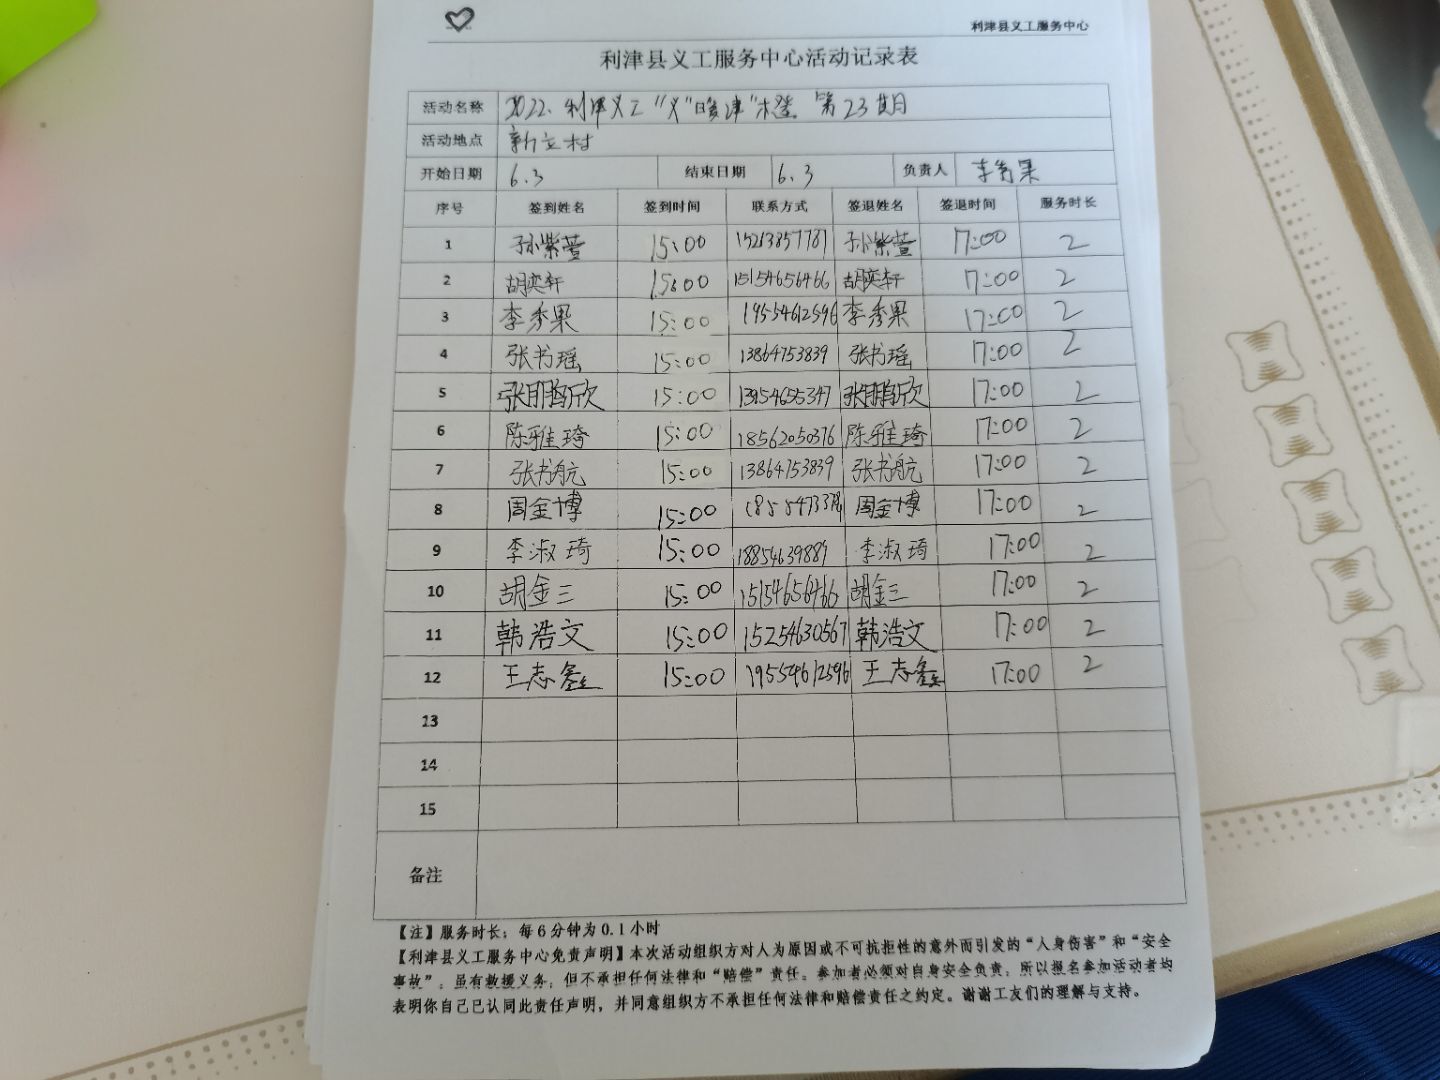 利津县义工服务中心
利津县义工服务中心活动记录表
活动名称 2022.利津义工"义"暖津" 第23期
活动地点 新立村
开始日期 6.3 结束日期 6.3 负责人 李秀果
序号 签到姓名 签到时间 联系方式 签退姓名 签退时间 服务时长
1 孙紫萱 15:00 15213857787 孙紫萱 17:00 2
2 胡奕轩 15:00 15154656466 胡奕轩 17:00 2
3 李秀果 15:00 19554612596 李秀果 17:00 2
4 张书瑶 15:00 13864753839 张书瑶 17:00 2
5 15:00 13954655347 17:00 2
6 陈雅琦 15:00 18562050376 陈雅琦 17:00 2
7 张书航 15:00 13864753839 张书航 17:00 2
8 周金博 15:00 周金博 17:00 2
9 李淑琦 15:00 18854639889 李淑琦 17:00 2
10 胡金三 15:00 15154656466 胡金三 17:00 2
11 韩浩文 15:00 15254630567 韩浩文 17:00 2
12 王志鑫 15:00 19554612596 王志鑫 17:00 2
13
14
15
备注
【注】服务时长：每6分钟为0.1小时
【利津县义工服务中心免责声明】本次活动组织方对人为原因或不可抗拒性的意外而引发的“人身伤害”和“安全
事故”，虽有救援义务，但不承担任何法律和“赔偿”责任。参加者必须对自身安全负责，所以报名参加活动者均
表明你自己已认同此责任声明，并同意组织方不承担任何法律和赔偿责任之约定。谢谢工友们的理解与支持。